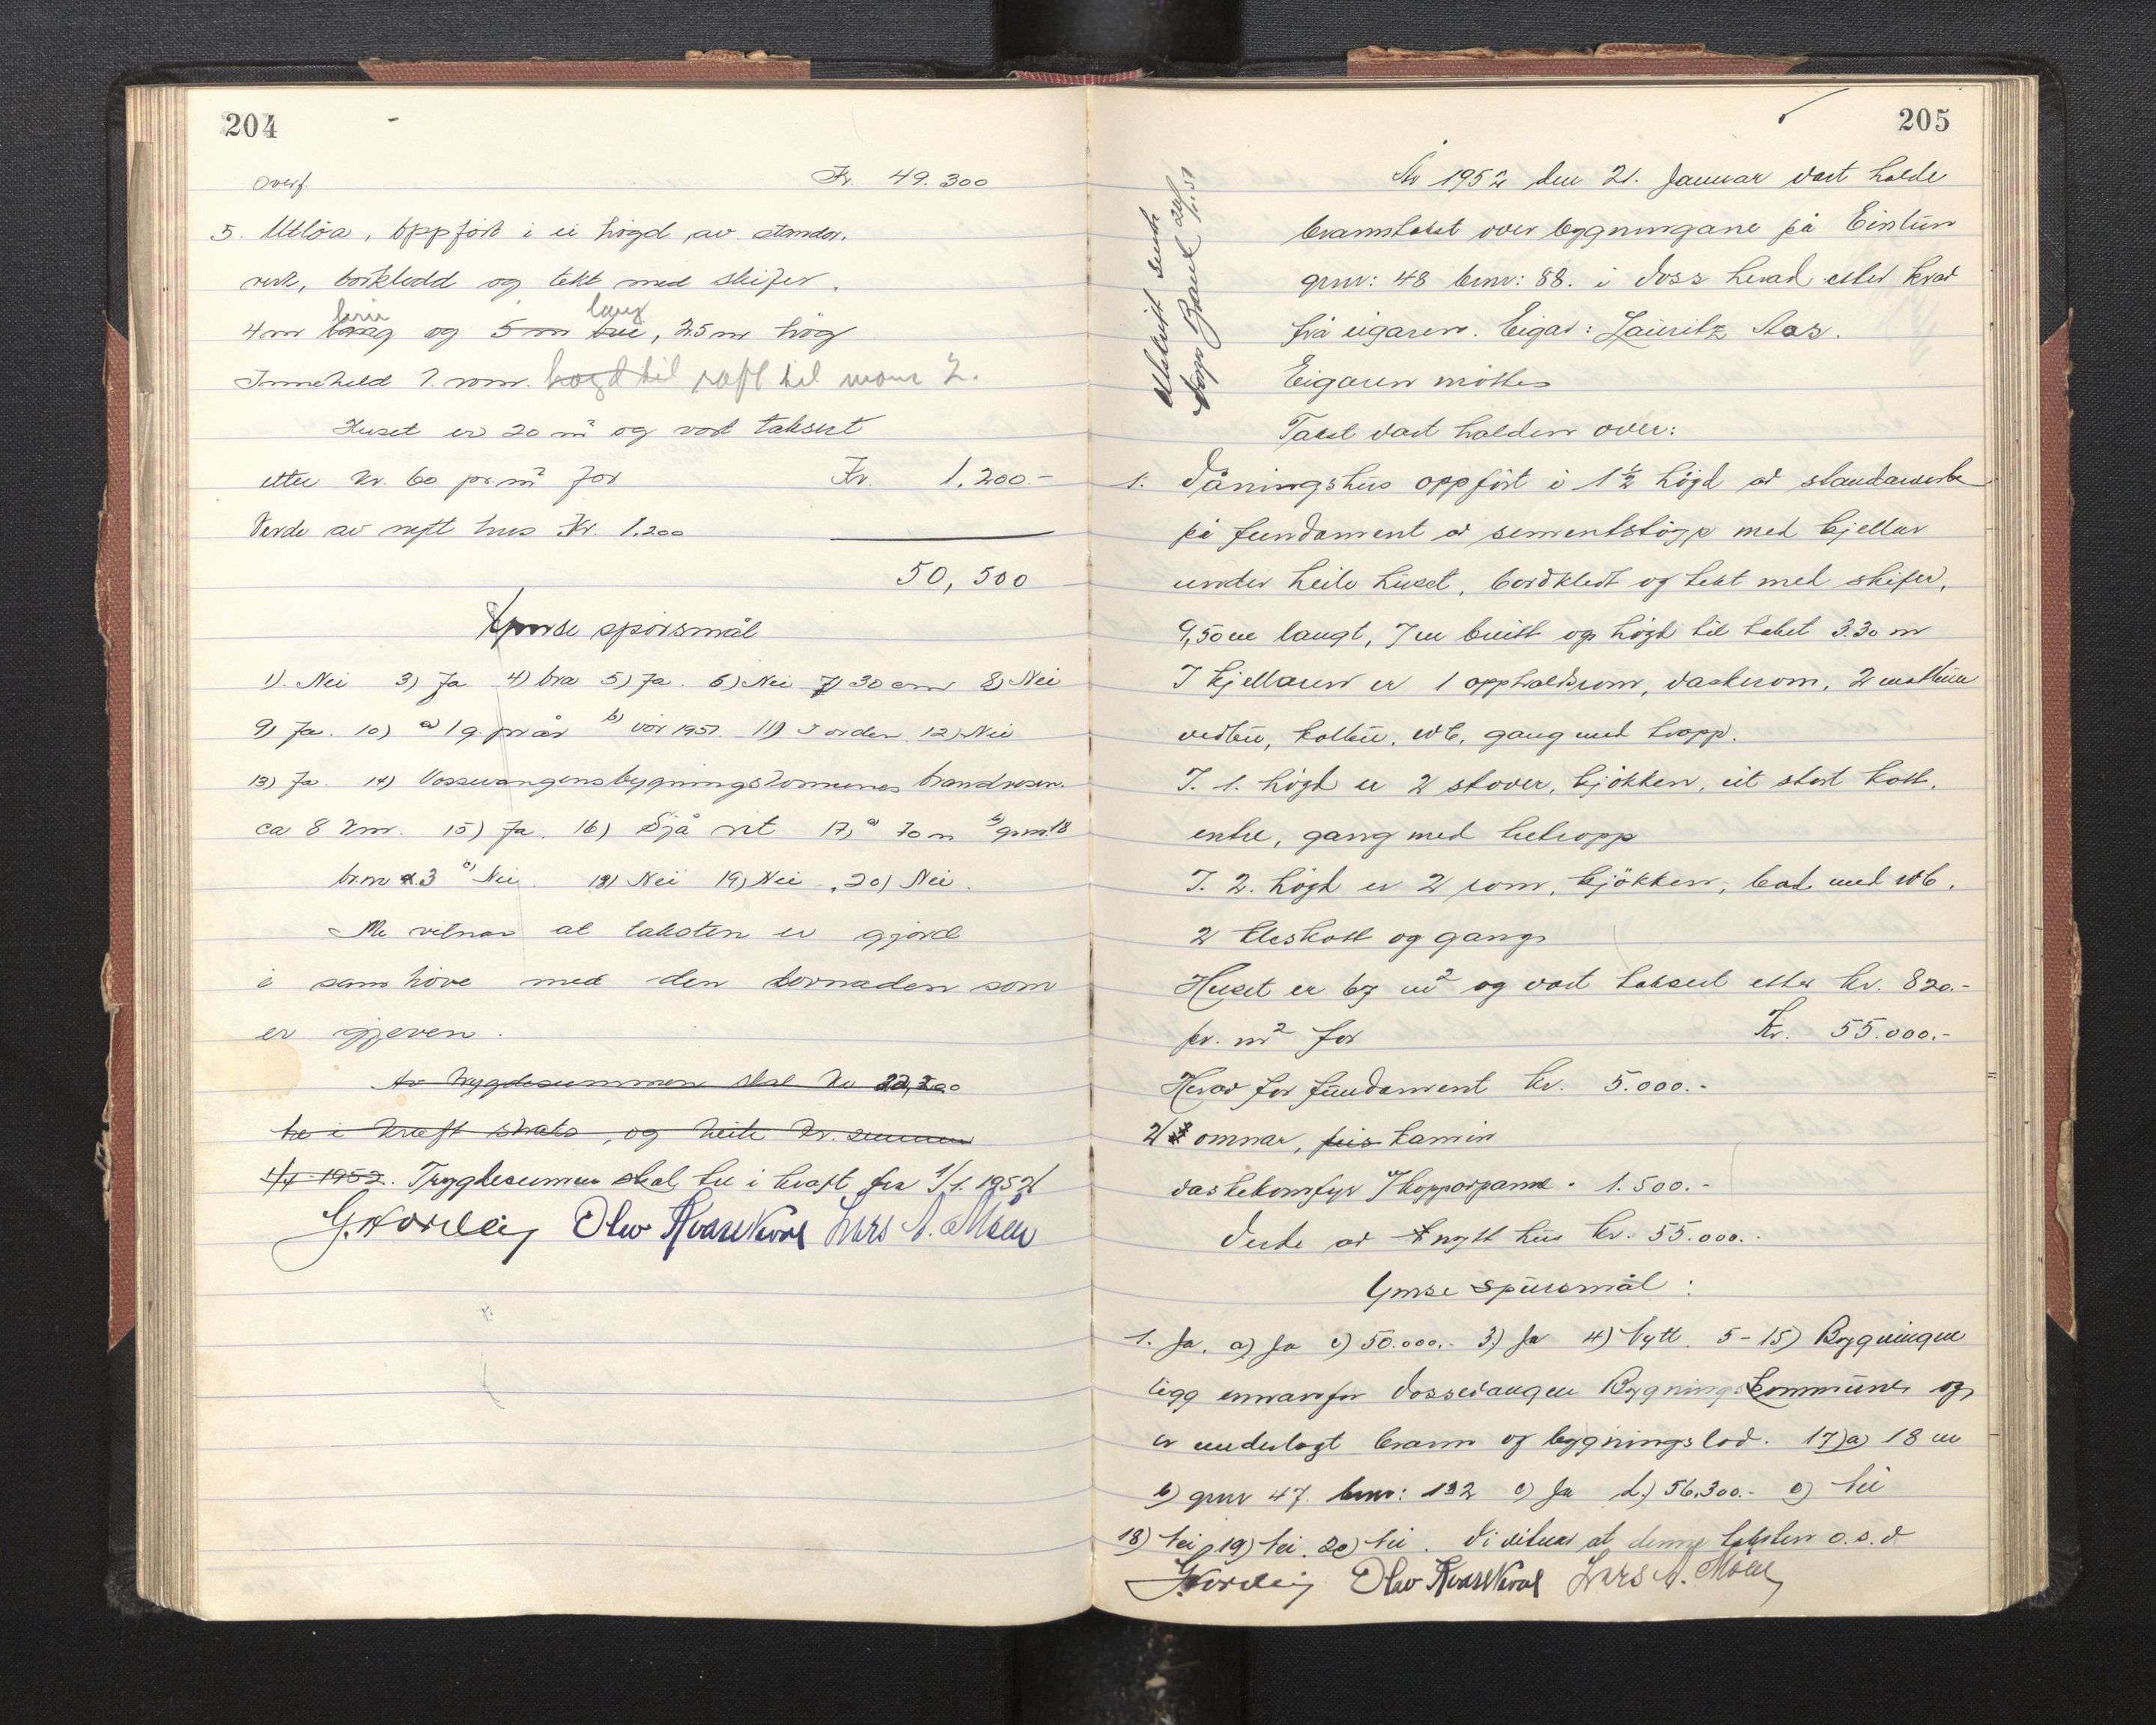 204
overf. Kr. 49.300
5. Utlöa, oppfört i ei högd av stander.
verk, bordkledd og tekt med skifer.
brei lang
4 m lang og 5 m brei, 2.5 m hög
Inneheld 1. rom. högd til raft til møne 2.
Huset er 20 m² og vart taksert
etter kr. 60 pr. m² for Kr. 1.200.-
Verde av nytt hus Kr. 1.200
50,500
Ymse spörsmål
1). Nei 3) Ja 4) bra 5) Ja. 6) Nei 7) 30 cm 8) Nei
9) Ja. 10) a) 1 g. pr år b) vår 1951. 11) I orden. 12) Nei
13) Ja. 14) Vossevangens bygningskommunes brandvesen.
ca 8 km. 15) Ja. 16) Sjå rit 17) a) 70 m b) gnr. 18
br.nr 3 c) Nei. 18) Nei 19) Nei, 20) Nei.
Me vitnar at taksten er gjord
i samhöve med den lovnaden som
er gjeven.
Av trygdesummen skal kr 22,200
tre i kraft straks, og heile kr. summen
1/1 1952. Trygdesummen skal tre i kraft fra 1/1. 1952
G. Nordeig Olav Kvasskval Lars A. Möen
205
År 1952 den 21. Januar vart halde
branntakst over bygningane på Eintun
gnr: 48 bnr: 88. i Voss herad etter krav
frå eigaren. Eigar: Lauritz Aas.
Eigaren mötte
Takst vart halden over:
1. Våningshus oppfört i 1½ högd av standarverk
på fundament av sementstöyp med kjellar
under heile huset, bordkledt og tekt med skifer,
9,50 m langt, 7 m breitt og högt til taket 3.30 m
I kjellaren er 1 oppholdsrom, vaskerom, 2 matbuer
vedbu, kolbu, WC, gang med trapp.
I. 1. högd er 2 stover, kjökken, eit stort kott,
entre, gang med tretrapp
I. 2. högd er 2 rom, kjökken, bad med WC,
2 kleskott og gang
Huset er 67 m² og vart taksert etter kr. 820.-
pr. m² for Kr. 55.000.-
Herav for fundament kr. 5.000.-
2 omnar, peis kamin
vaskekomfyr m/ kopparpanne - 1.500.-
Verde av nytt hus kr. 55.000.-
Ymse spursmål:
1. Ja. a) Ja c) 50.000.- 3) Ja 4) Nytt. 5-15) Bygningen
ligg innanfor Vossevangen Bygningskommune og
er underlagt brann og bygningslov. 17) a) 18 m
b) gnr 47. bnr: 132 c) Ja d.) 56.300.- e) Nei
18) Nei, 19) Nei. 20) Nei. Vi vitnar at denne taksten o.s.v
G. Nordeig Olav Kvasskval Lars A. Möen